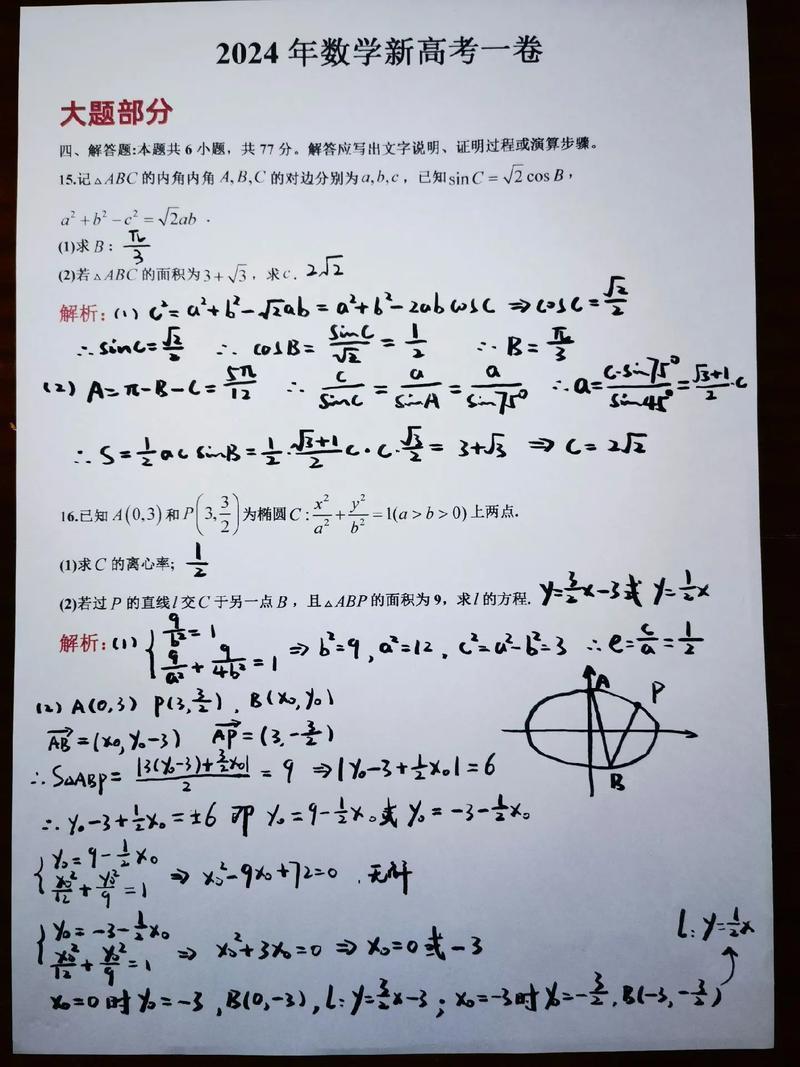 2024年数学新高考一卷
大题部分
四、解答题:本题共6小题，共77分。解答应写出文字说明、证明过程或演算步骤。
15.记△ABC的内角内角A,B,C的对边分别为a,b,c，已知sinC=√2cosB，
a²+b²-c²=√2ab．
(1)求B：π/3
(2)若△ABC的面积为3+√3，求c．2√2
解析：(1) c²=a²+b²-√2ab=a²+b²-2abcosC ⇒cosC=√2/2
∴sinC=√2/2 ∴cosB=sinC/√2=1/2 ∴B=π/3
(2) A=π-B-C=5π/12 ∴c/sinC=a/sinA=a/sin75° ∴a=c·sin75°/sin45°=(√3+1)/2·c
∴S=1/2acsinB=1/2·(√3+1)/2c·c·√3/2=3+√3 ⇒c=2√2
16.已知A(0,3)和P(3,3/2)为椭圆C:x²/a²+y²/b²=1(a>b>0)上两点.
(1)求C的离心率；1/2
(2)若过P的直线l交C于另一点B，且△ABP的面积为9，求l的方程. y=3/2x-3或y=1/2x
解析：(1) {9/b²=1
9/a²+9/4b²=1 ⇒b²=9,a²=12,c²=a²-b²=3 ∴e=c/a=1/2
(2) A(0,3) P(3,3/2), B(x₀,y₀)
A
P
B
AB=(x₀,y₀-3) AP=(3,-3/2)
∴S△ABP=|3(y₀-3)+3/2x₀|/2=9 ⇒|y₀-3+1/2x₀|=6
∴y₀-3+1/2x₀=±6 即y₀=9-1/2x₀或y₀=-3-1/2x₀
{y₀=9-1/2x₀
x₀²/12+y₀²/9=1 ⇒x₀²-9x₀+72=0,无解
{y₀=-3-1/2x₀
x₀²/12+y₀²/9=1 ⇒x₀²+3x₀=0 ⇒x₀=0或-3
l:y=1/2x
x₀=0时y₀=-3,B(0,-3),l:y=3/2x-3;x₀=-3时y₀=-3/2,B(-3,-3/2)